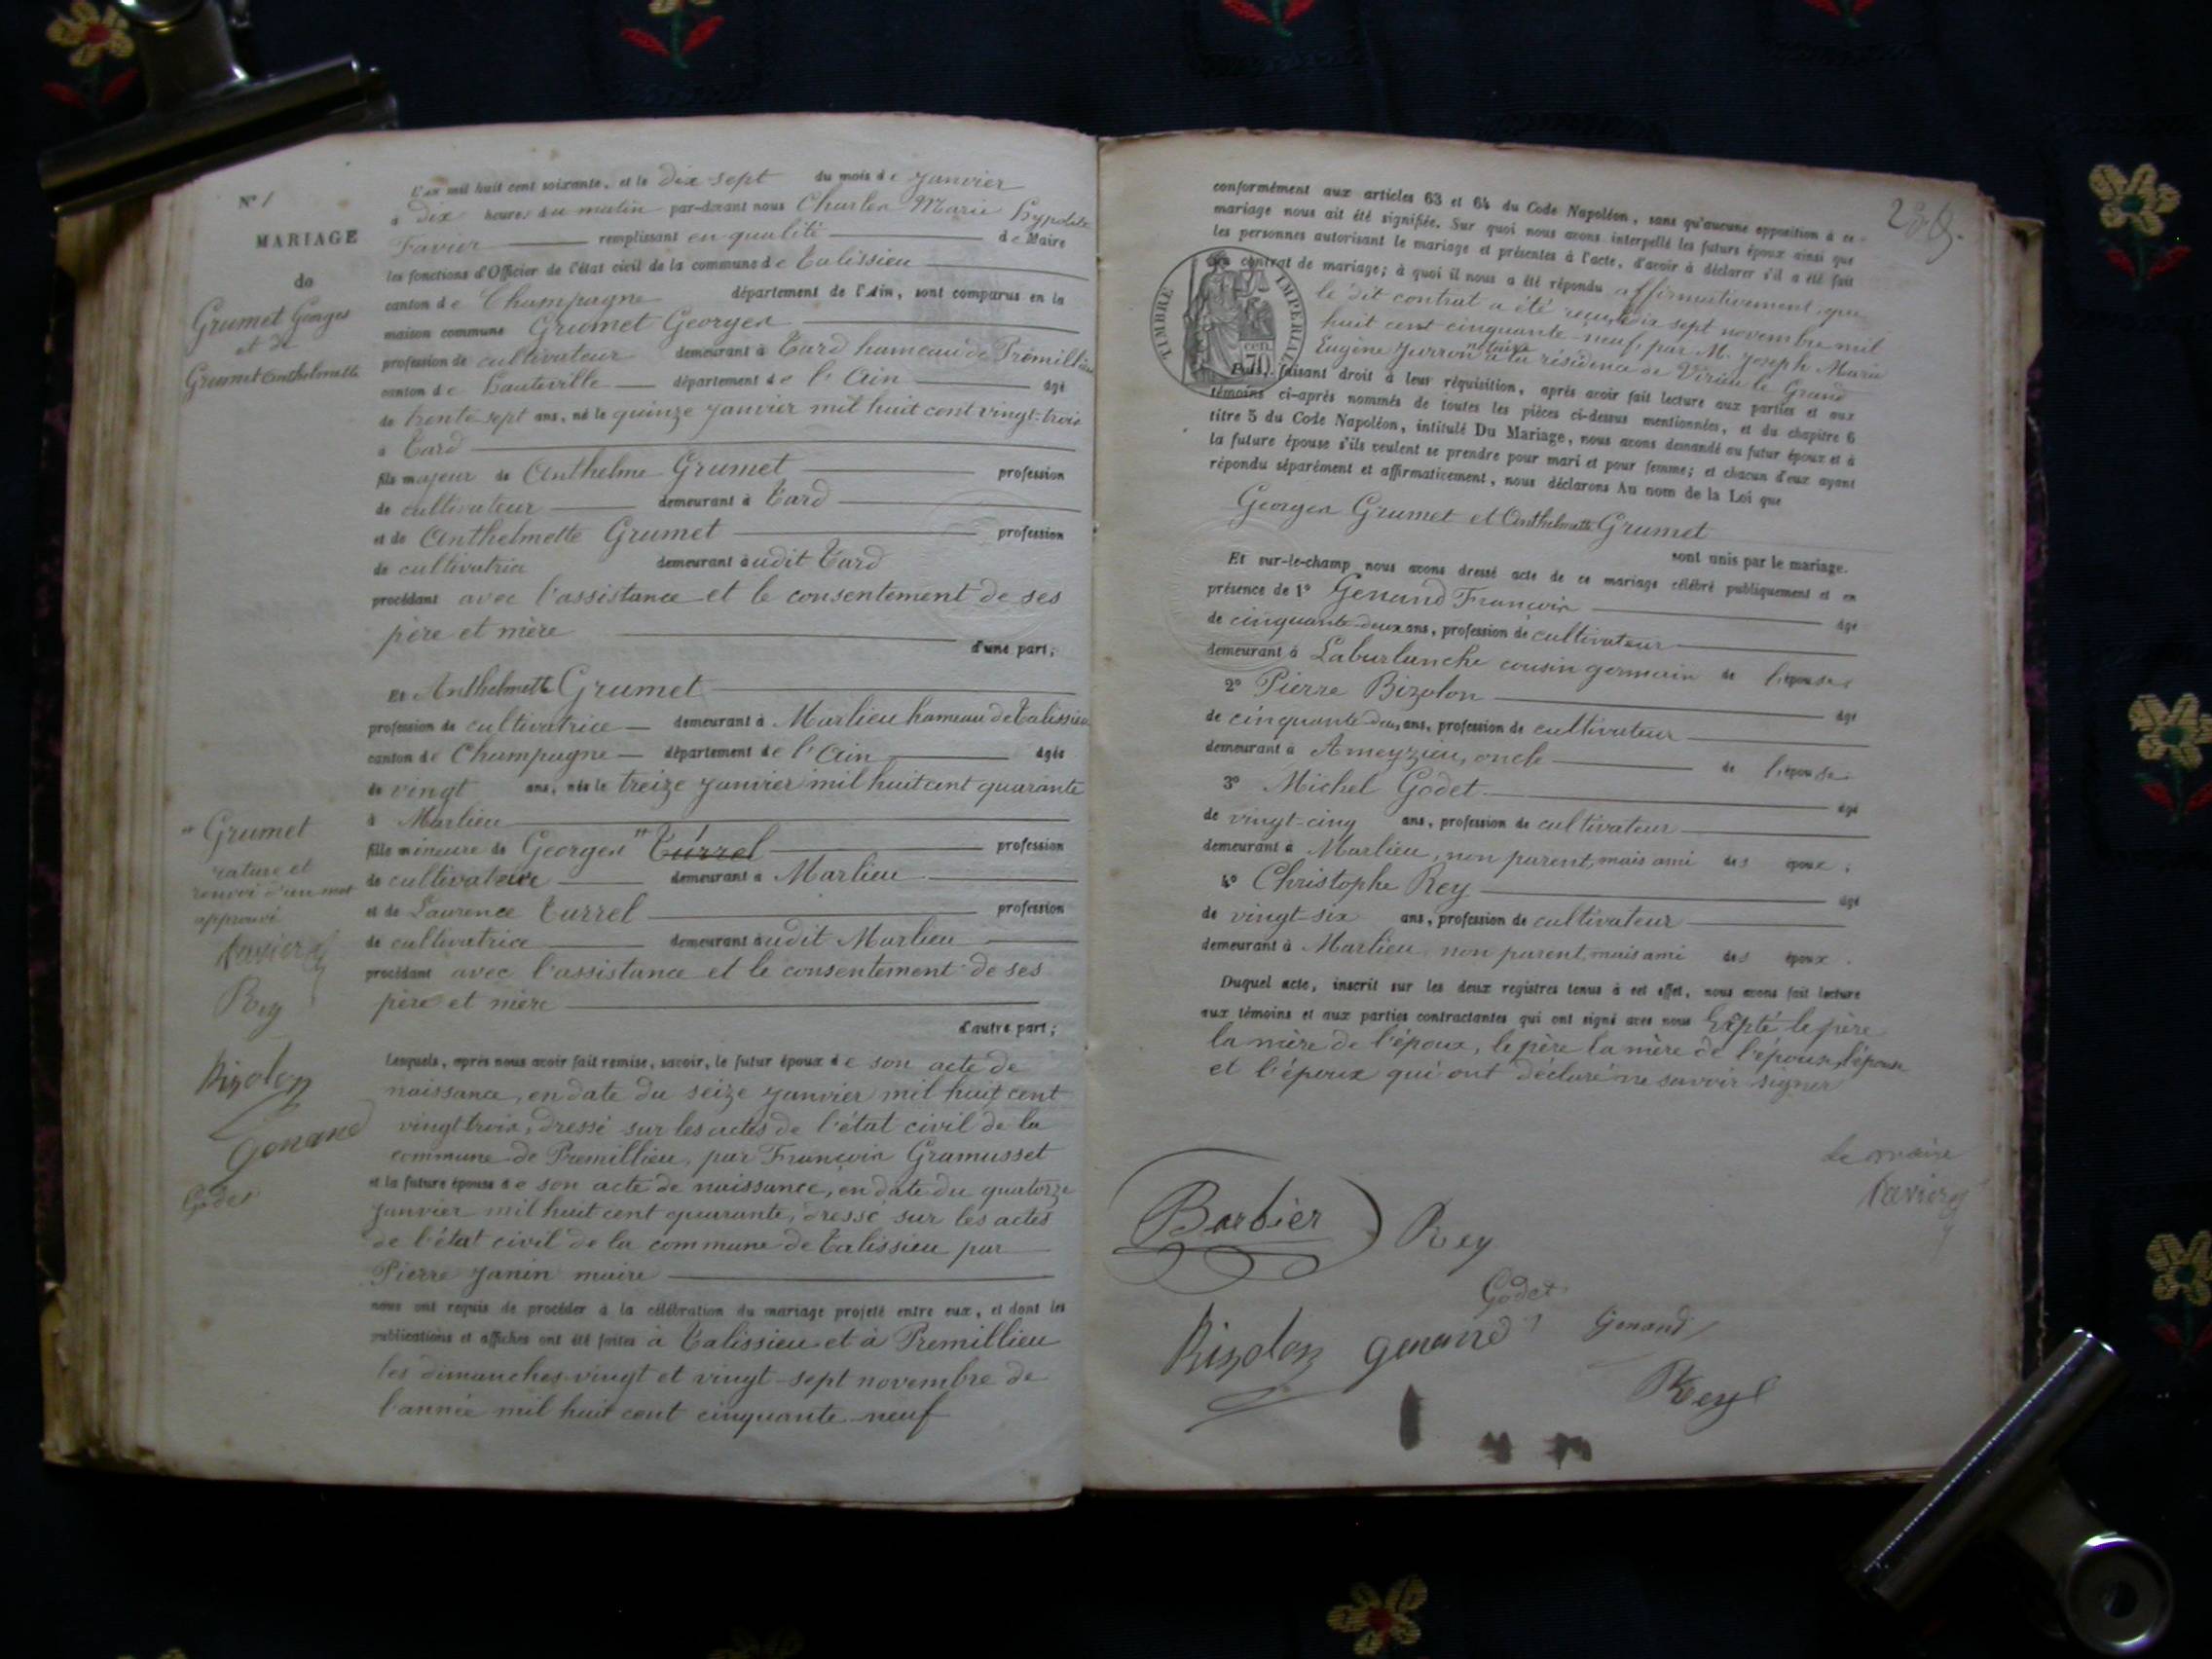 N° 1
MARIAGE
de
Grumet Georges
et de
Grumet Anthelmette
L'an mil huit cent soixante, et le dix-sept du mois de janvier
à dix heures du matin par-devant nous Charles Marie Hypolite
Favier remplissant en qualité de Maire
les fonctions d'Officier de l'état civil de la commune de Talissieu
canton de Champagne département de l'Ain, sont comparus en la
maison commune Grumet Georges
profession de cultivateur demeurant à Tard hameau de Prémillieu
canton de Hauteville département de l'Ain âgé
de trente sept ans, né le quinze janvier mil huit cent vingt-trois
à Tard
fils majeur de Anthelme Grumet profession
de cultivateur demeurant à Tard
et de Anthelmette Grumet profession
de cultivatrice demeurant audit Tard
procédant avec l'assistance et le consentement de ses
père et mère
d'une part;
Et Anthelmette Grumet
profession de cultivatrice demeurant à Marlieu hameau de Talissieu
canton de Champagne département de l'Ain âgée
de vingt ans, née le treize janvier mil huit cent quarante
à Marlieu
fille mineure de Georges " Turrel profession
de cultivateur demeurant à Marlieu
et de Laurence Turrel profession
de cultivatrice demeurant audit Marlieu
procédant avec l'assistance et le consentement de ses
père et mère
d'autre part;
" Grumet
rature et
renvoi d'un mot
approuvé
Favier
Rey
Bizolon
Genand
Godet
Lesquels, après nous avoir fait remise, savoir, le futur époux de son acte de
naissance, en date du seize janvier mil huit cent
vingt trois, dressé sur les actes de l'état civil de la
commune de Premillieu, par François Gramusset
et la future épouse de son acte de naissance, en date du quatorze
janvier mil huit cent quarante, dressé sur les actes
de l'état civil de la commune de Talissieu par
Pierre Janin maire
nous ont requis de procéder à la célébration du mariage projeté entre eux, et dont les
publications et affiches ont été faites à Talissieu et à Premillieu
les dimanches vingt et vingt-sept novembre de
l'année mil huit cent cinquante-neuf
conformément aux articles 63 et 64 du Code Napoléon, sans qu'aucune opposition à ce
mariage nous ait été signifiée. Sur quoi nous avons interpellé les futurs époux ainsi que
les personnes autorisant le mariage et présentes à l'acte, d'avoir à déclarer s'il a été fait
un contrat de mariage; à quoi il nous a été répondu affirmativement que
le dit contrat a été reçu le dix sept novembre mil
huit cent cinquante neuf, par M. Joseph Marie
Eugène Jurron notaire à la résidence de Virieu le Grand
TIMBRE IMPÉRIAL
70 cen.
Puis, faisant droit à leur réquisition, après avoir fait lecture aux parties et aux
témoins ci-après nommés de toutes les pièces ci-dessus mentionnées, et du chapitre 6
titre 5 du Code Napoléon, intitulé Du Mariage, nous avons demandé au futur époux et à
la future épouse s'ils veulent se prendre pour mari et pour femme; et chacun d'eux ayant
répondu séparément et affirmativement, nous déclarons Au nom de la Loi que
Georges Grumet et Anthelmette Grumet
sont unis par le mariage.
Et sur-le-champ nous avons dressé acte de ce mariage célébré publiquement et en
présence de 1° Genand François âgé
de cinquante-deux ans, profession de cultivateur
demeurant à Laburlanche cousin germain de l'épouse
2° Pierre Bizolon âgé
de cinquante-deux ans, profession de cultivateur
demeurant à Ameyzieu, oncle de l'épouse
3° Michel Godet âgé
de vingt-cinq ans, profession de cultivateur
demeurant à Marlieu, non parent, mais ami des époux;
4° Christophe Rey âgé
de vingt-six ans, profession de cultivateur
demeurant à Marlieu, non parent, mais ami des époux.
Duquel acte, inscrit sur les deux registres tenus à cet effet, nous avons fait lecture
aux témoins et aux parties contractantes qui ont signé avec nous Expté le père
la mère de l'époux, le père la mère de l'épouse, l'épouse
et l'époux qui ont déclaré ne savoir signer
Le maire
Favier
Barbier
Rey
Godet
Bizolon
Genand
Genand
Rey